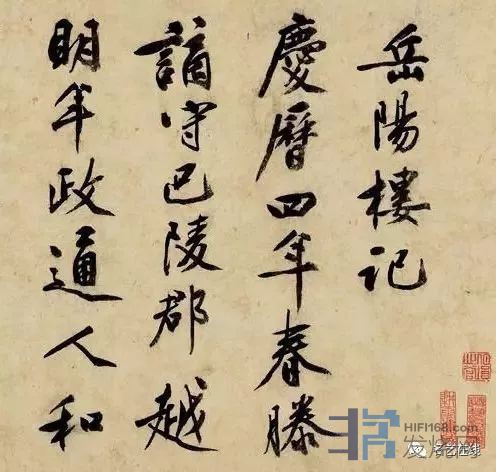 岳陽樓記
慶曆四年春滕
謫守巴陵郡越
明年政通人和
HIFI168.com